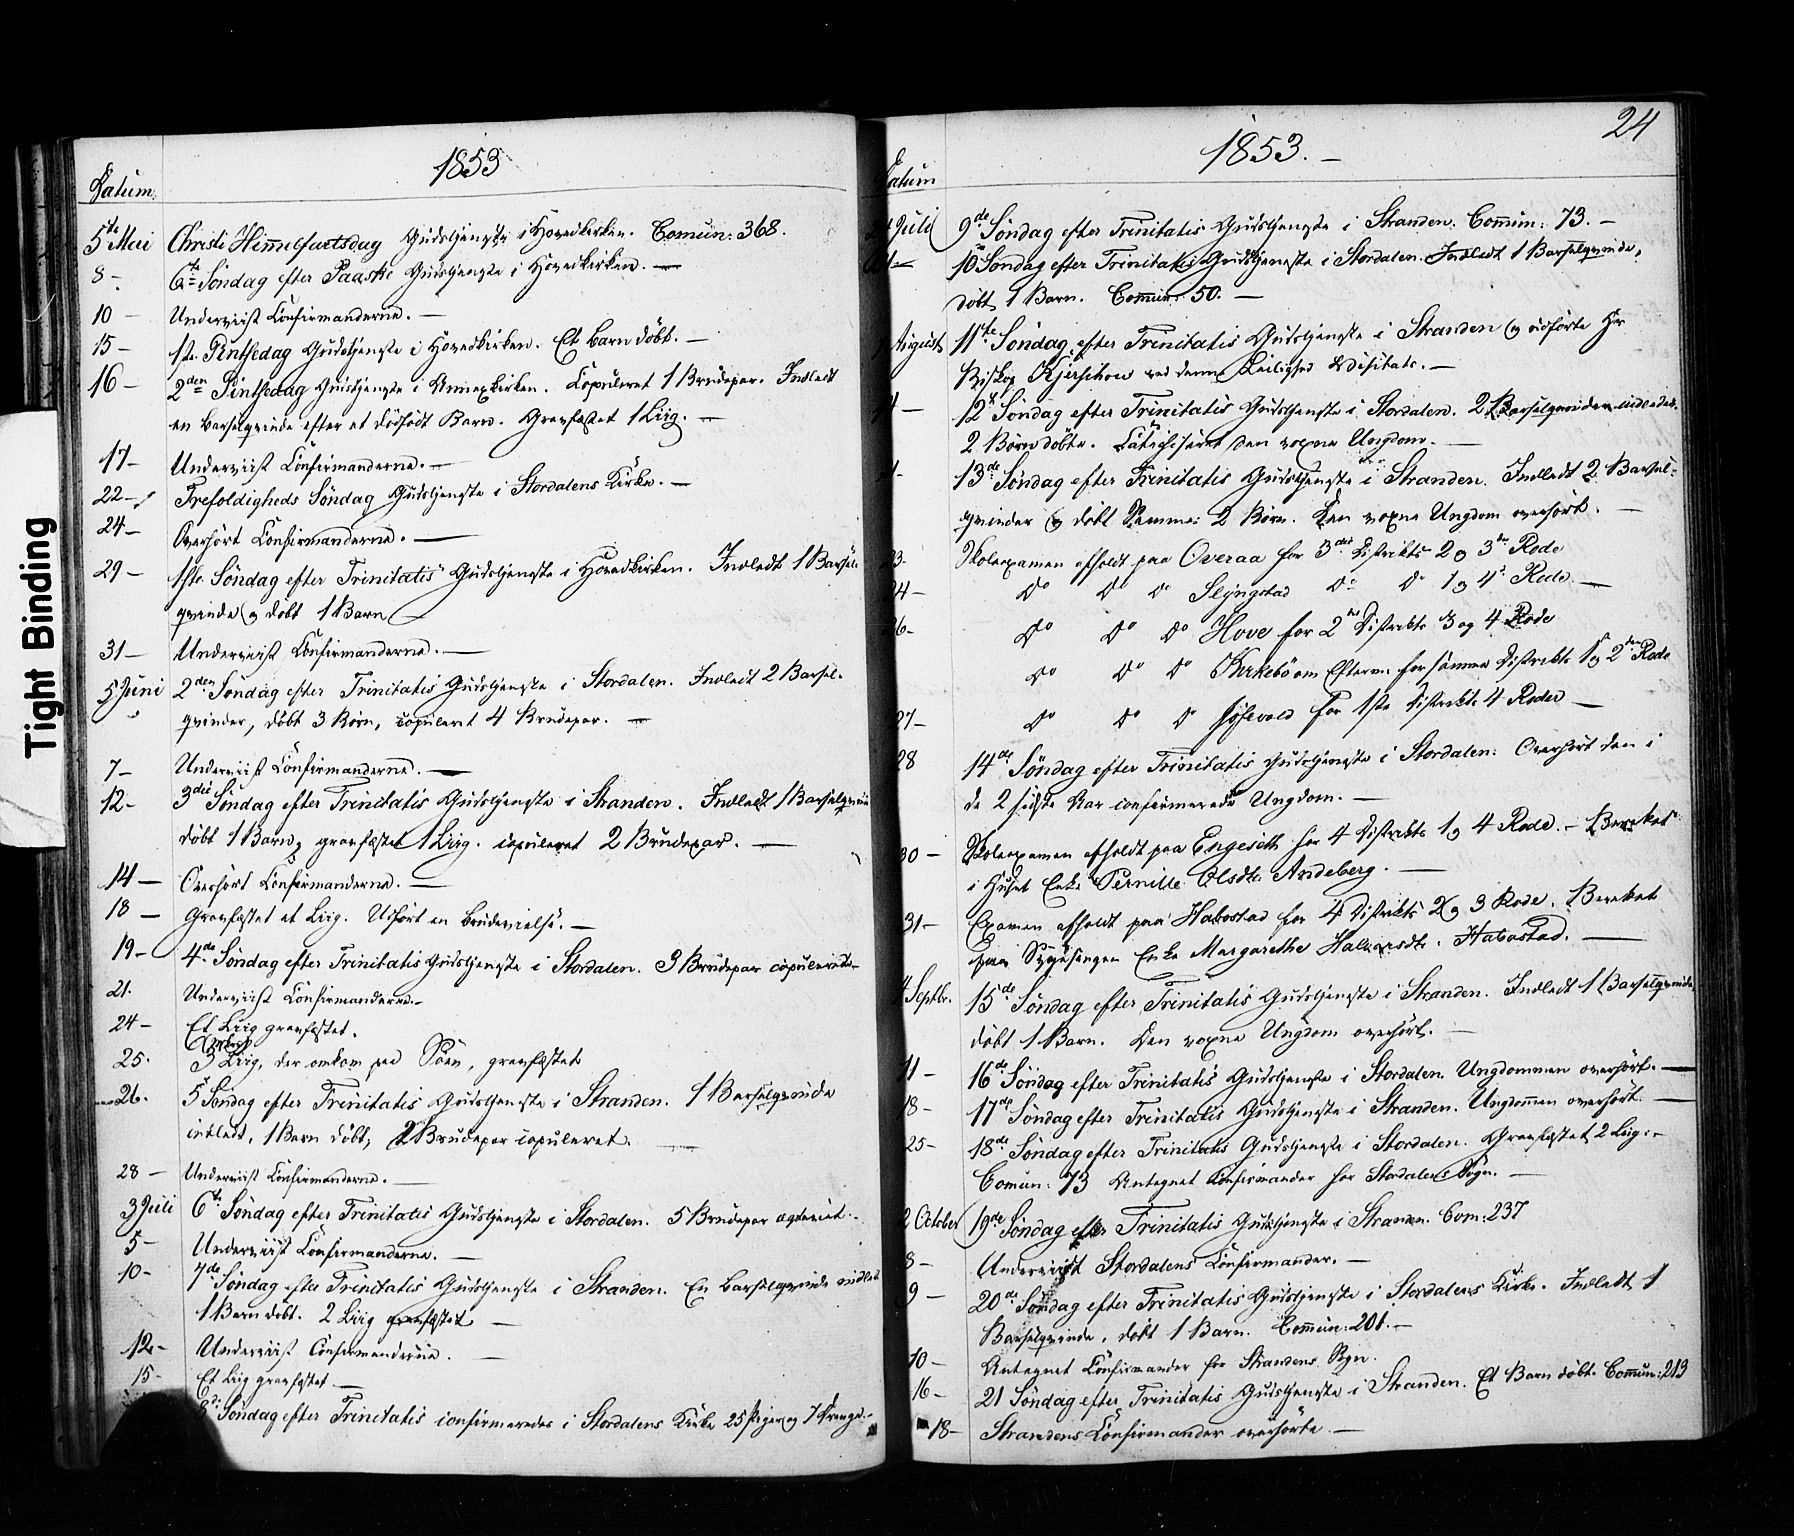 1853
Datum.
5te Mai Christi Himmelfartsdag Gudstjeneste i Hovedkirken. Comun: 368.
8 - 6te Søndag efter Paaske Gudstjeneste i Hovedkirken. —
10 - Underviist Confirmanderne. —
15 - 1ste Pintsedag Gudstjeneste i Hovedkirken. Et Barn döbt. —
16 - 2den Pintsedag Gudstjeneste i Annexkirken. Copuleret 1 Brudepar. Indledt
en Barselqvinde efter et dödfödt Barn. Gravfæstet 1 Liig. —
17 - Underviist Confirmanderne. —
22 - Trefoldigheds Söndag Gudstjeneste i Stordalens Kirke. —
24 - Overhört Confirmanderne. —
29 - 1ste Söndag efter Trinitatis Gudstjeneste i Hovedkirken. Indledt 1 Barsel-
qvinde og döbt 1 Barn
31 - Underviist Confirmanderne. —
5 Juni 2den Söndag efter Trinitatis Gudstjeneste i Stordalen. Indledt 2 Barsel-
qvinder, döbt 3 Börn, copuleret 4 Brudepar. —
7 - Underviist Confirmanderne. —
12 - 3die Söndag efter Trinitatis Gudstjeneste i Stranden. Indledt 1 Barselqvinde
döbt 1 Barn, gravfæstet 1 Liig. copuleret 2 Brudepar. —
14 - Overhört Confirmanderne. —
18 - Gravfæstet et Liig. Udfört en Brudevielse. —
19 - 4de Söndag efter Trinitatis Gudstjeneste i Stordalen. 3 Brudepar copulerede -
21. Underviist Confirmanderne. -
24 - Et Liig gravfæstet.
25. 3 Liig, der omkom paa Söen, gravfæstet
26. 5 Söndag efter Trinitatis Gudstjeneste i Stranden. 1 Barselqvinde
indledt, 1 Barn döbt, 2 Brudepar copuleret. —
28 - Underviist Confirmanderne. —
3 Juli 6te Söndag efter Trinitatis Gudstjeneste i Stordalen. 5 Brudepar ægteviet. -
5 - Underviist Confirmanderne. —
10 - 7de Söndag efter Trinitatis Gudstjeneste i Stranden. En Barselqvinde indledt
1 Barn döbt. 2 Liig gravfæstet —
12 - Underviist Confirmanderne. —
15 - Et Liig gravfæstet —
8de Söndag efter Trinitatis confirmeredes i Stordalens Kirke 25 Piger og 7 Drenge. -
24
1853. —
Datum
Juli 9de Söndag efter Trinitatis Gudstjeneste i Stranden. Comun: 73. —
10 Söndag efter Trinitatis Gudstjeneste i Stordalen. Indledt 1 Barselqvinde,
döbt 1 Barn. Comun: 50. —
August 11te Söndag efter Trinitatis Gudstjeneste i Stranden og udförte Hr
Biskop Kjerschow ved denne Leilighed Visitats. —
12te Söndag efter Trinitatis Gudstjeneste i Stordalen. 2 Barselqvinder indledet.
2 Börn döbte. Catechiseret den voxne Ungdom. —
13de Söndag efter Trinitatis Gudstjeneste i Stranden. Indledt 2 Barsel-
qvinder og döbt Samme: 2 Börn. Den voxne Ungdom overhört. —
23. Skoleexamen afholdt paa Overaa for 3die Distrikts 2 og 3de Rode
24 - Do Do Do Slyngstad Do Do 1 og 4de Rode —
26 - Do Do Do Hove for 2det Distrikts 3 og 4 Rode
Do Do Do Kirkebö om Efterm: for samme Distrikts 1 og 2den Rode
27 - Do Do Do for 1ste Distrikts 4 Roder —
28 14de Söndag efter Trinitatis Gudstjeneste i Stordalen. Overhört den i
de 2 sidste Aar confirmerede Ungdom. —
30 - Skoleexamen afholdt paa Engeseth for 4 Distrikts 1 og 4 Rode. - Berettet
i Huset Enke Pernille Olsdtr Andeberg. —
31 - Examen afholdt paa Habostad for 4 Distrikts 2 og 3 Rode. Berettet
paa Sygesengen Enke Margarethe Halversdtr Habostad. —
4 Septbr. 15de Söndag efter Trinitatis Gudstjeneste i Stranden. Indledt 1 Barselqvinde
döbt 1 Barn. Den voxne Ungdom overhört. —
11 - 16de Söndag efter Trinitatis Gudstjeneste i Stordalen. Ungdommen overhört. —
18 - 17de Söndag efter Trinitatis Gudstjeneste i Stranden. Ungdommen overhört. —
25 - 18de Söndag efter Trinitatis Gudstjeneste i Stordalen. Gravfæstet 2 Liig. -
Comun: 73 Antegnet Confirmander for Stordalens Sogn. —
2 October 19de Söndag efter Trinitatis Gudstjeneste i Stranden. Com: 237
8 - Underviist Stordalens Confirmander. —
9 - 20de Söndag efter Trinitatis Gudstjeneste i Stordalens Kirke. Indledt 1
Barselqvinde, döbt 1 Barn. Comun: 201. —
10 - Antegnet Confirmander for Strandens Sogn.
16 - 21 Söndag efter Trinitatis Gudstjeneste i Stranden. Et Barn döbt. Comun: 213
18 - Strandens Confirmander overhörte —
Tight Binding